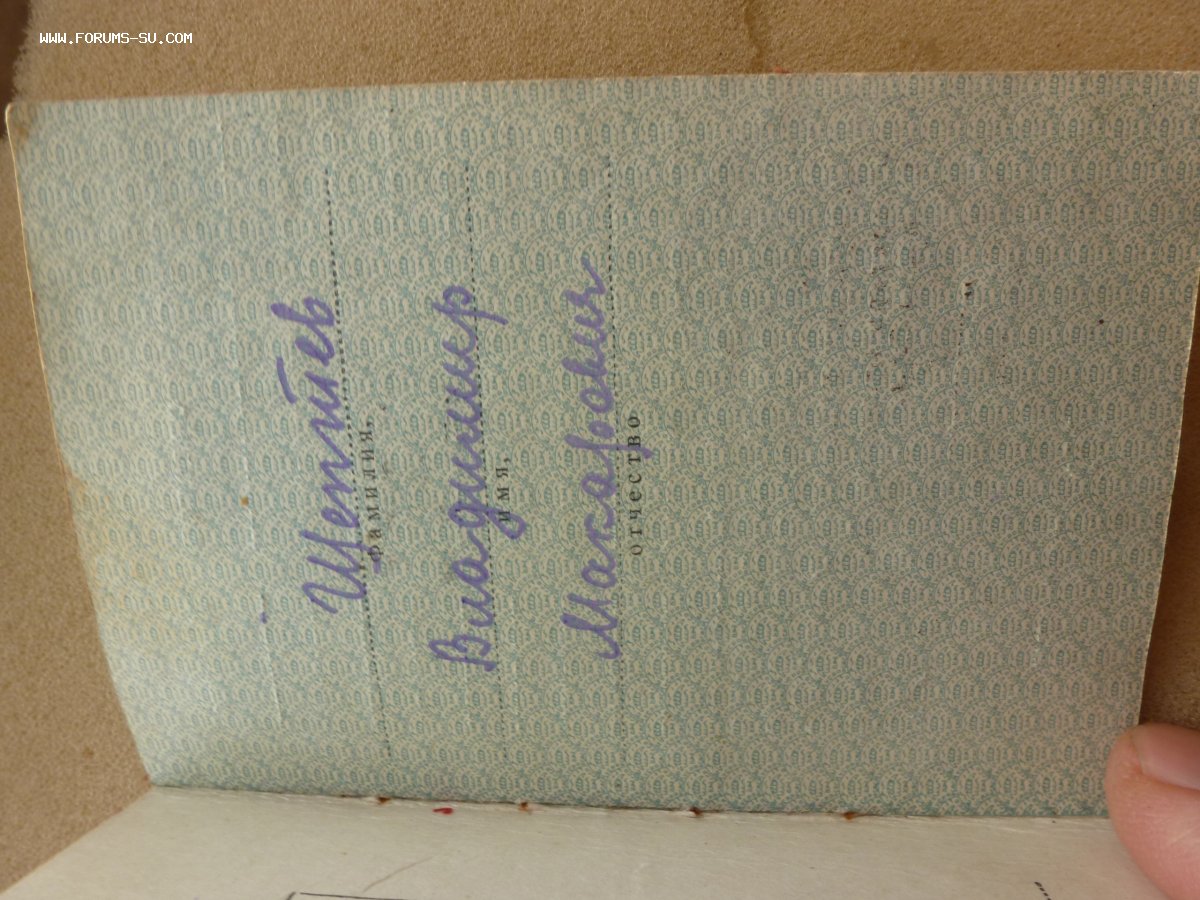 WWW.FORUMS-SU.COM
Щептев
фамилия,
Владимир
имя,
Макарович
отчество